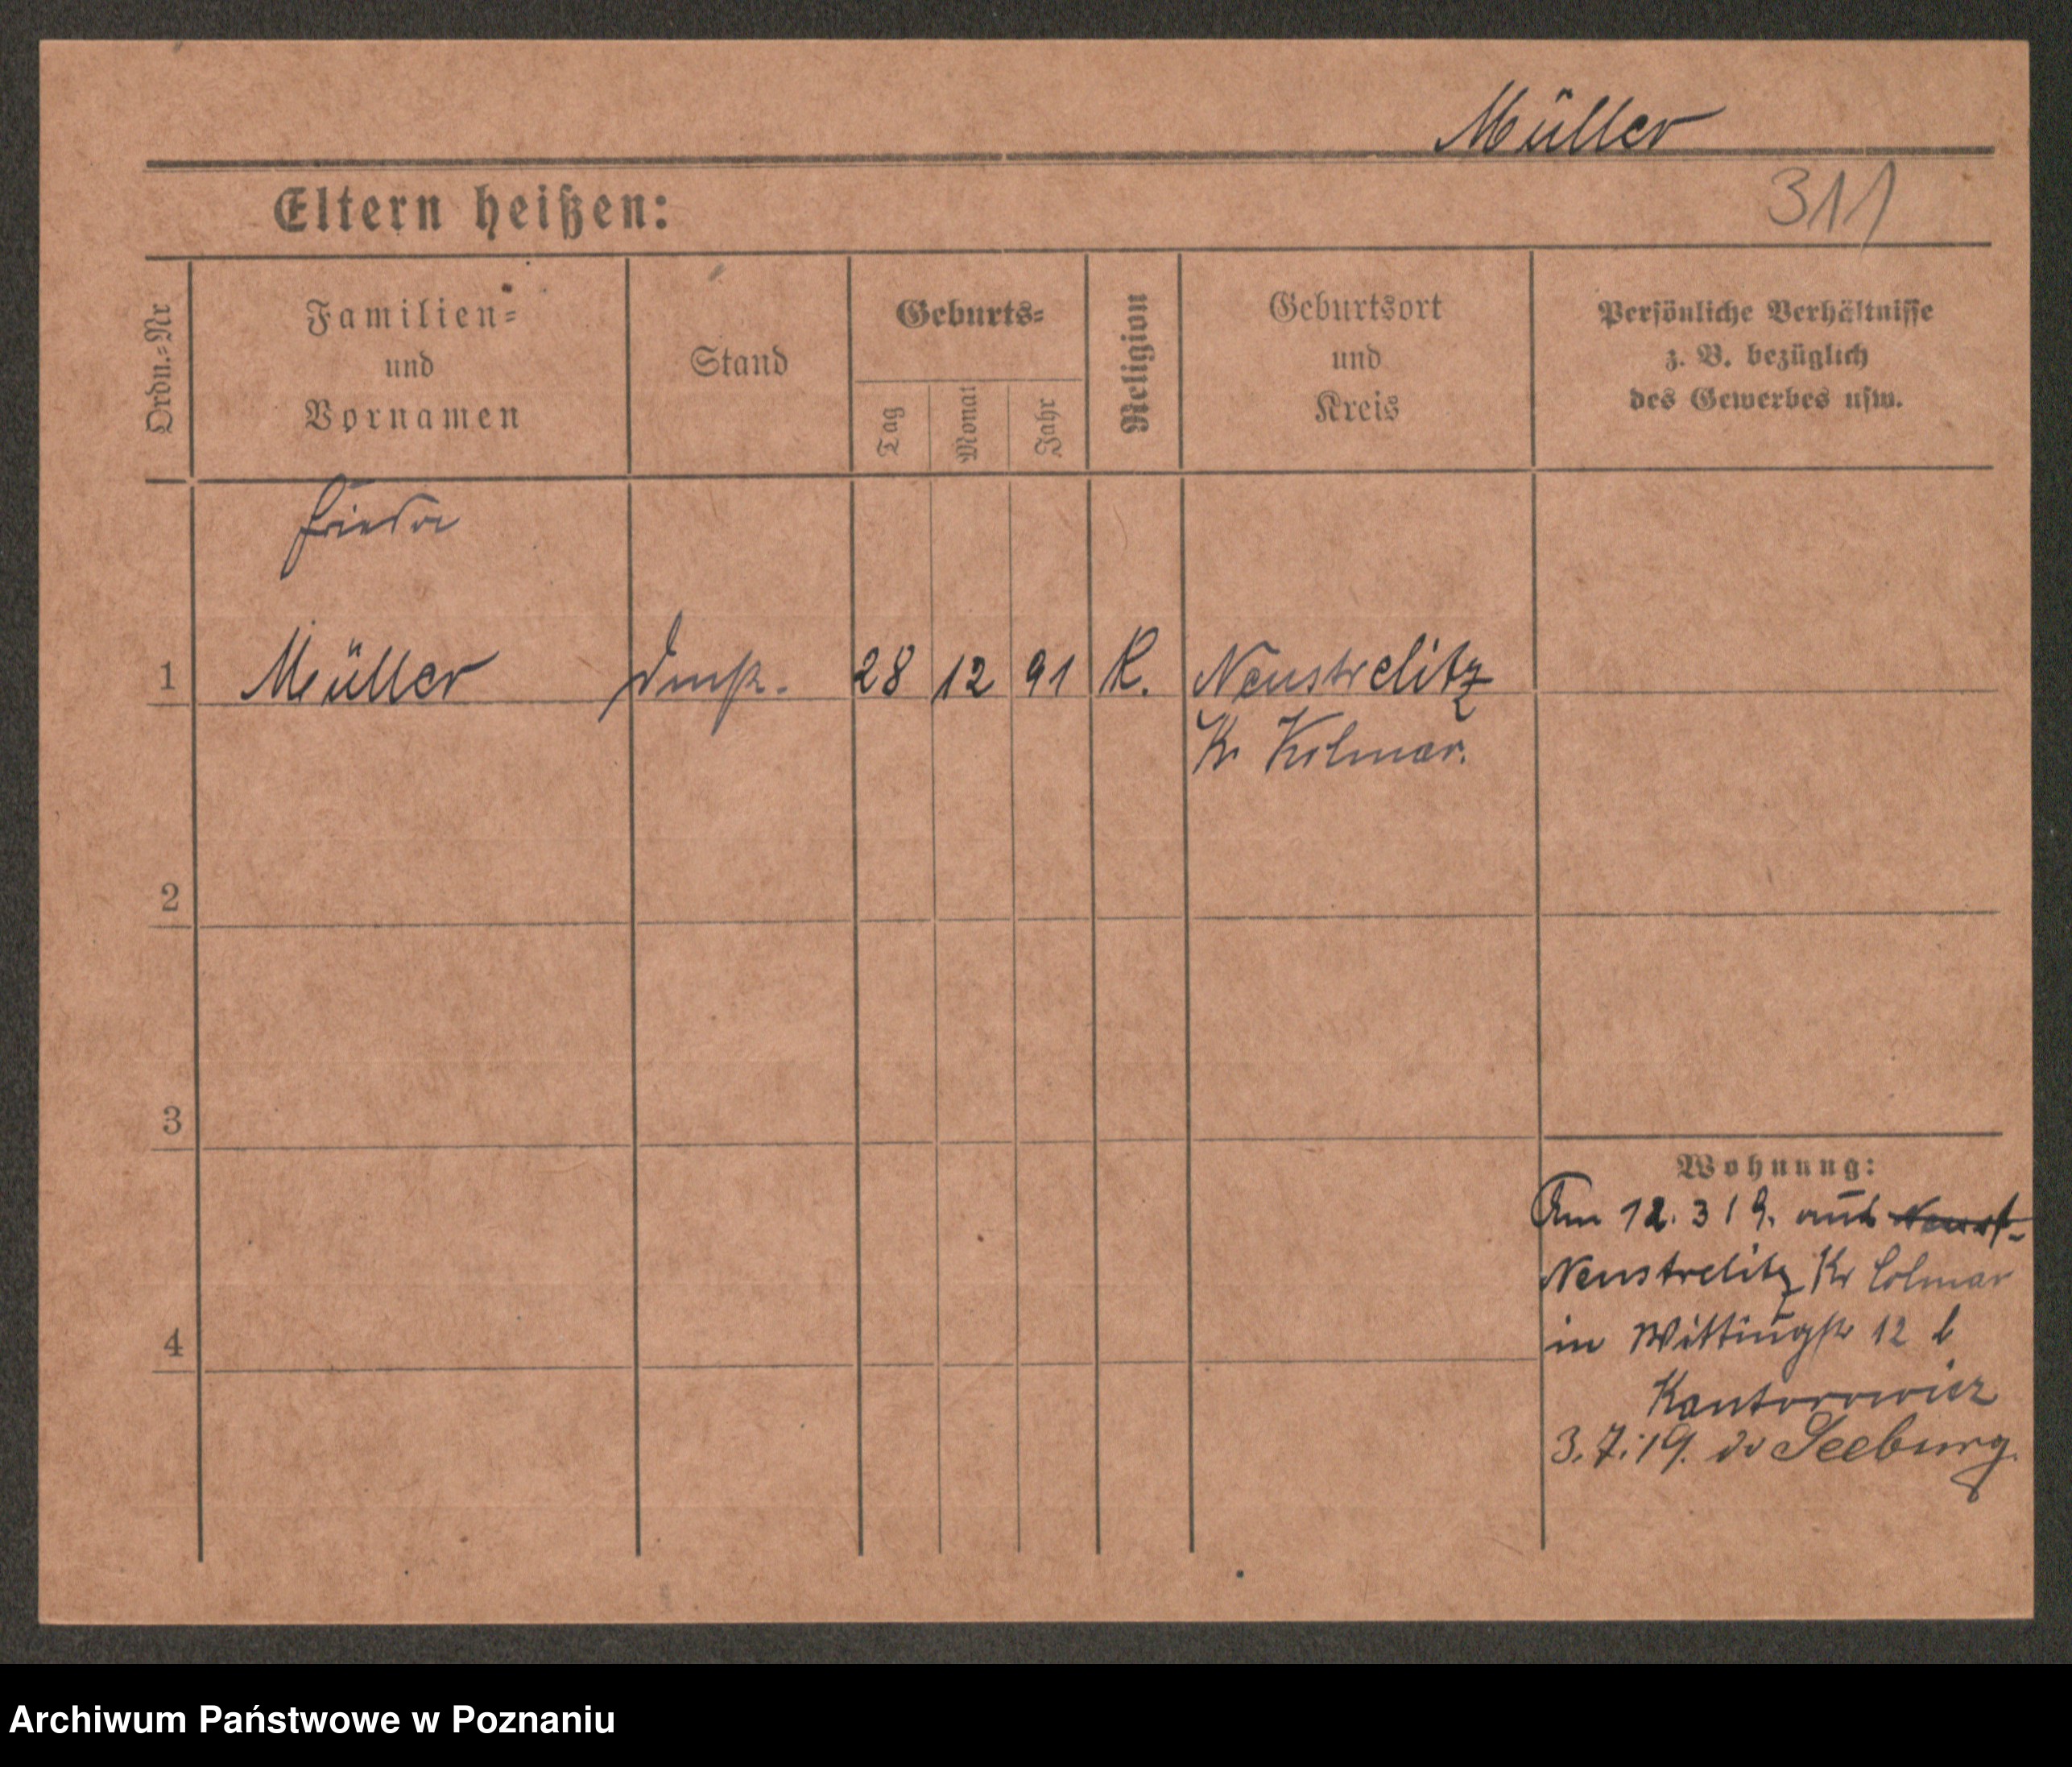 Müller
311
Eltern heißen:
Ordn.=Nr
Familien=
und
Vornamen
Stand
Geburts=
Tag
Monat
Jahr
Religion
Geburtsort
und
Kreis
Persönliche Verhältnisse
z. B. bezüglich
des Gewerbes usw.
Frieda
1 Müller 28 12 91 K. Neustrelitz
Kr Kolmar.
2
3
4
Wohnung:
Am 12. 3 19. aus Neust-
Neustrelitz Kr Colmar
in Wittingstr 12 b
Kantorowicz
3. 7. 19. Seeburg.
Archiwum Państwowe w Poznaniu